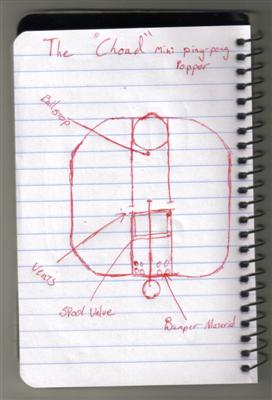 The "Choad" Mini ping-pong
Popper
Ball stop
Vents
Spool Valve
Bumper Material